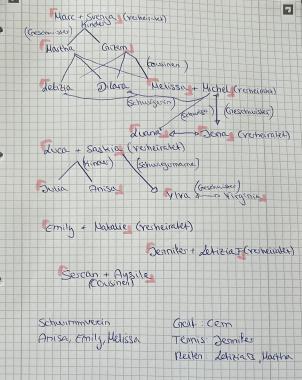 Marc + Svenja (verheiratet)
(Geschwister) Kinder
Martha Cidem
(cousinen)
Letizia Dilara Melissa + Michel (verheiratet)
(Schwägerin) (Geschwister)
Luana Jena (verheiratet)
Luca + Saskia (verheiratet)
(Kinder)
Julia Anisa (Geschwister)
Ylva Virginia
Emily + Natalie (verheiratet)
Jennifer + Letizia F (verheiratet)
Sercan + Aysile
(Cousinen)
Schwimmverein Golf: Cem
Anisa, Emily, Melissa Tennis Jennifer
Reiten Letizia B, Martha